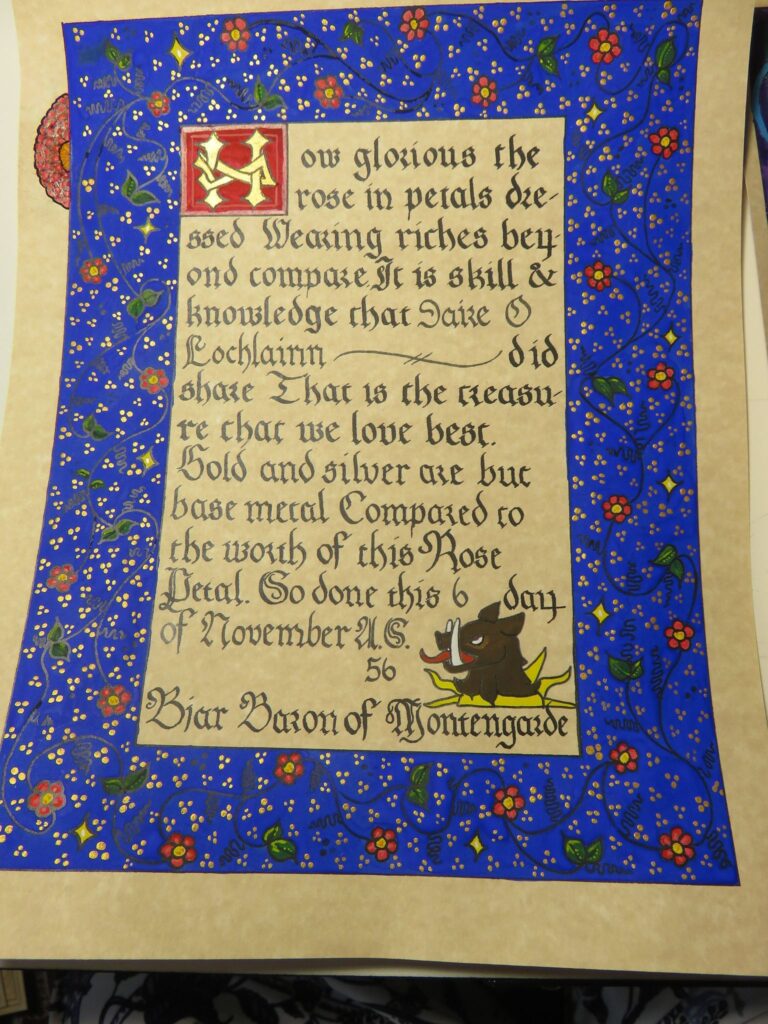 How glorious the
rose in petals dre-
ssed Wearing riches bey-
ond compare, It is skill &
knowledge that Daire O
Lochlainn did
share That is the treasu-
re that we love best.
Gold and silver are but
base metal Compared to
the worth of this Rose
Petal. So done this 6 day
of November A.S.
56
Bjar Baron of Montengarde